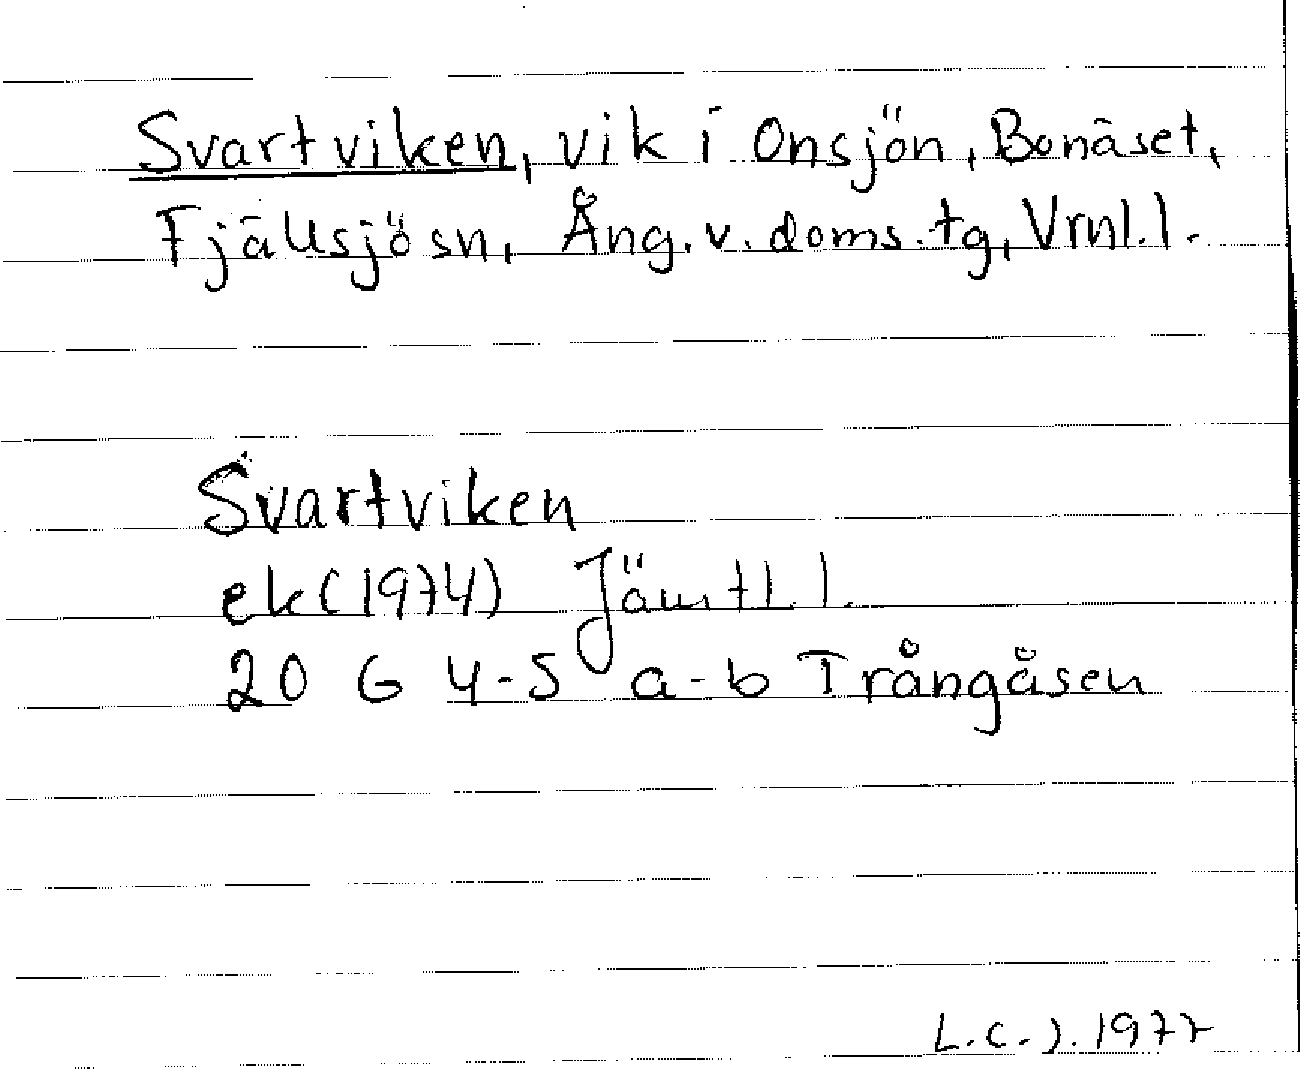 Svartviken, vik i Onsjön, Bonäset,
Fjällsjösn, Ång.v.doms.tg, Vrnl.l.
Svartviken
ek (1974) Jämtl.l.
20 G 4-5 a-b Trångåsen
L.C.J. 1977